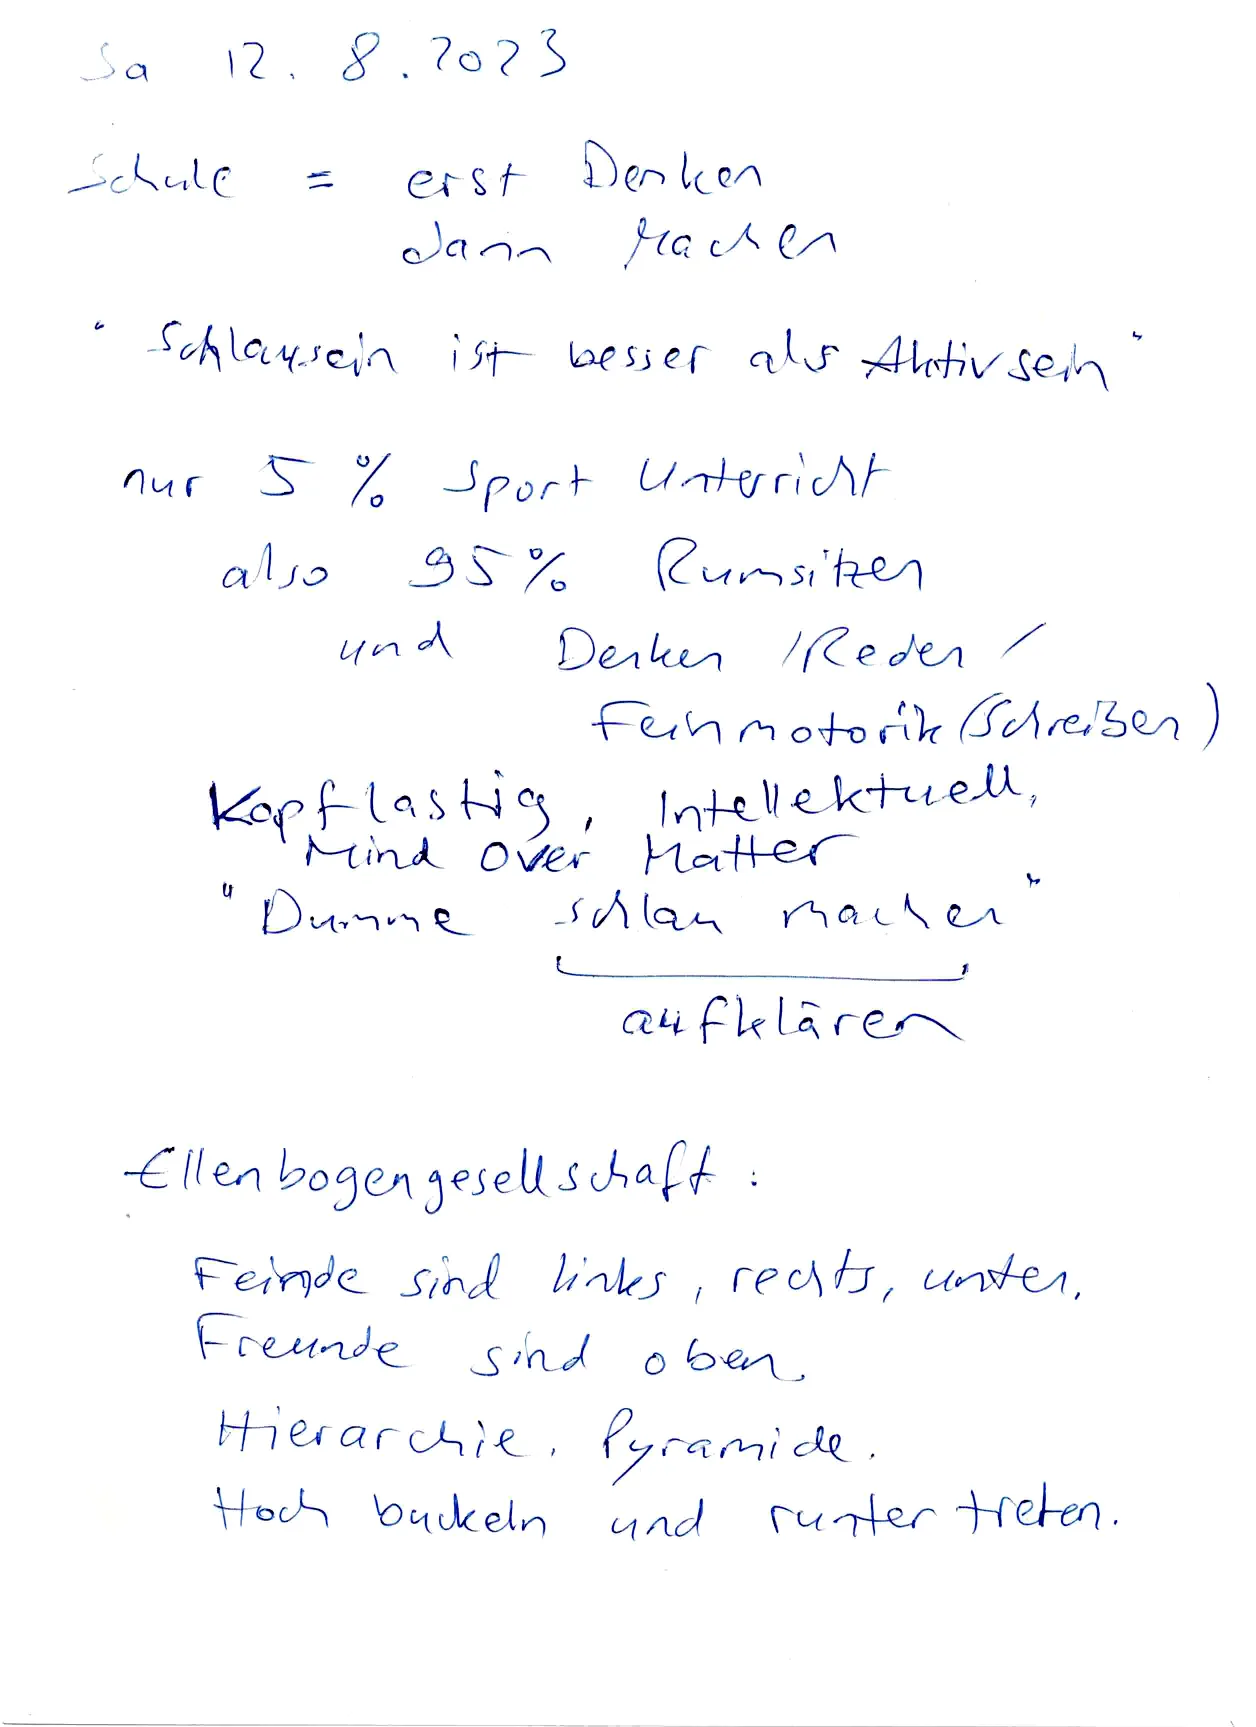 Sa 12. 8. 2023
Schule = erst Denken
dann Machen
"Schlausein ist besser als Aktivsein"
nur 5 % Sport Unterricht
also 95% Rumsitzen
und Denken / Reden /
Feinmotorik (Schreiben)
Kopflastig, Intellektuell,
Mind Over Matter
"Dumme schlau machen"
aufklären
Ellenbogengesellschaft:
Feinde sind links, rechts, unten.
Freunde sind oben.
Hierarchie. Pyramide.
Hoch buckeln und runter treten.